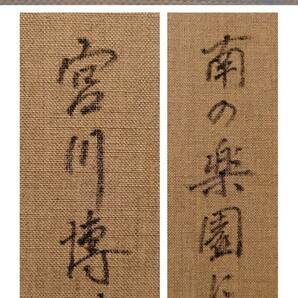 宮川博
南の楽園に